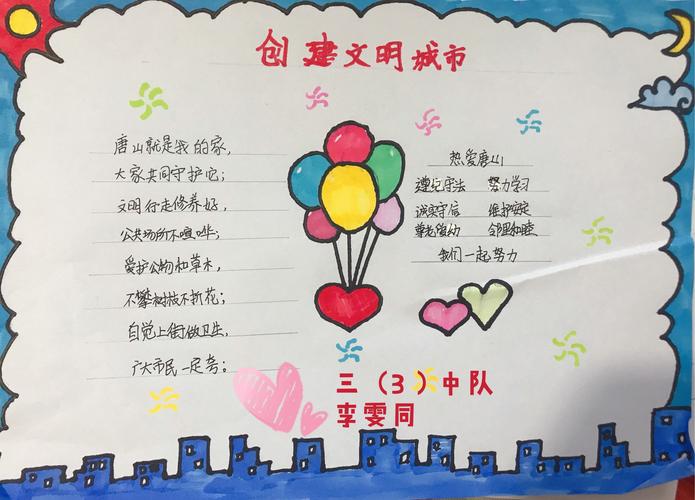 创建文明城市
唐山就是我的家,
大家共同守护它;
文明行走修养好,
公共场所不喧哗;
爱护公物和草木,
不攀树枝不折花;
自觉上街做卫生,
广大市民一定夸。
热爱唐山
遵纪守法 努力学习
诚实守信 维护安定
尊老爱幼 邻里和睦
我们一起努力
三（3）中队
李雯同